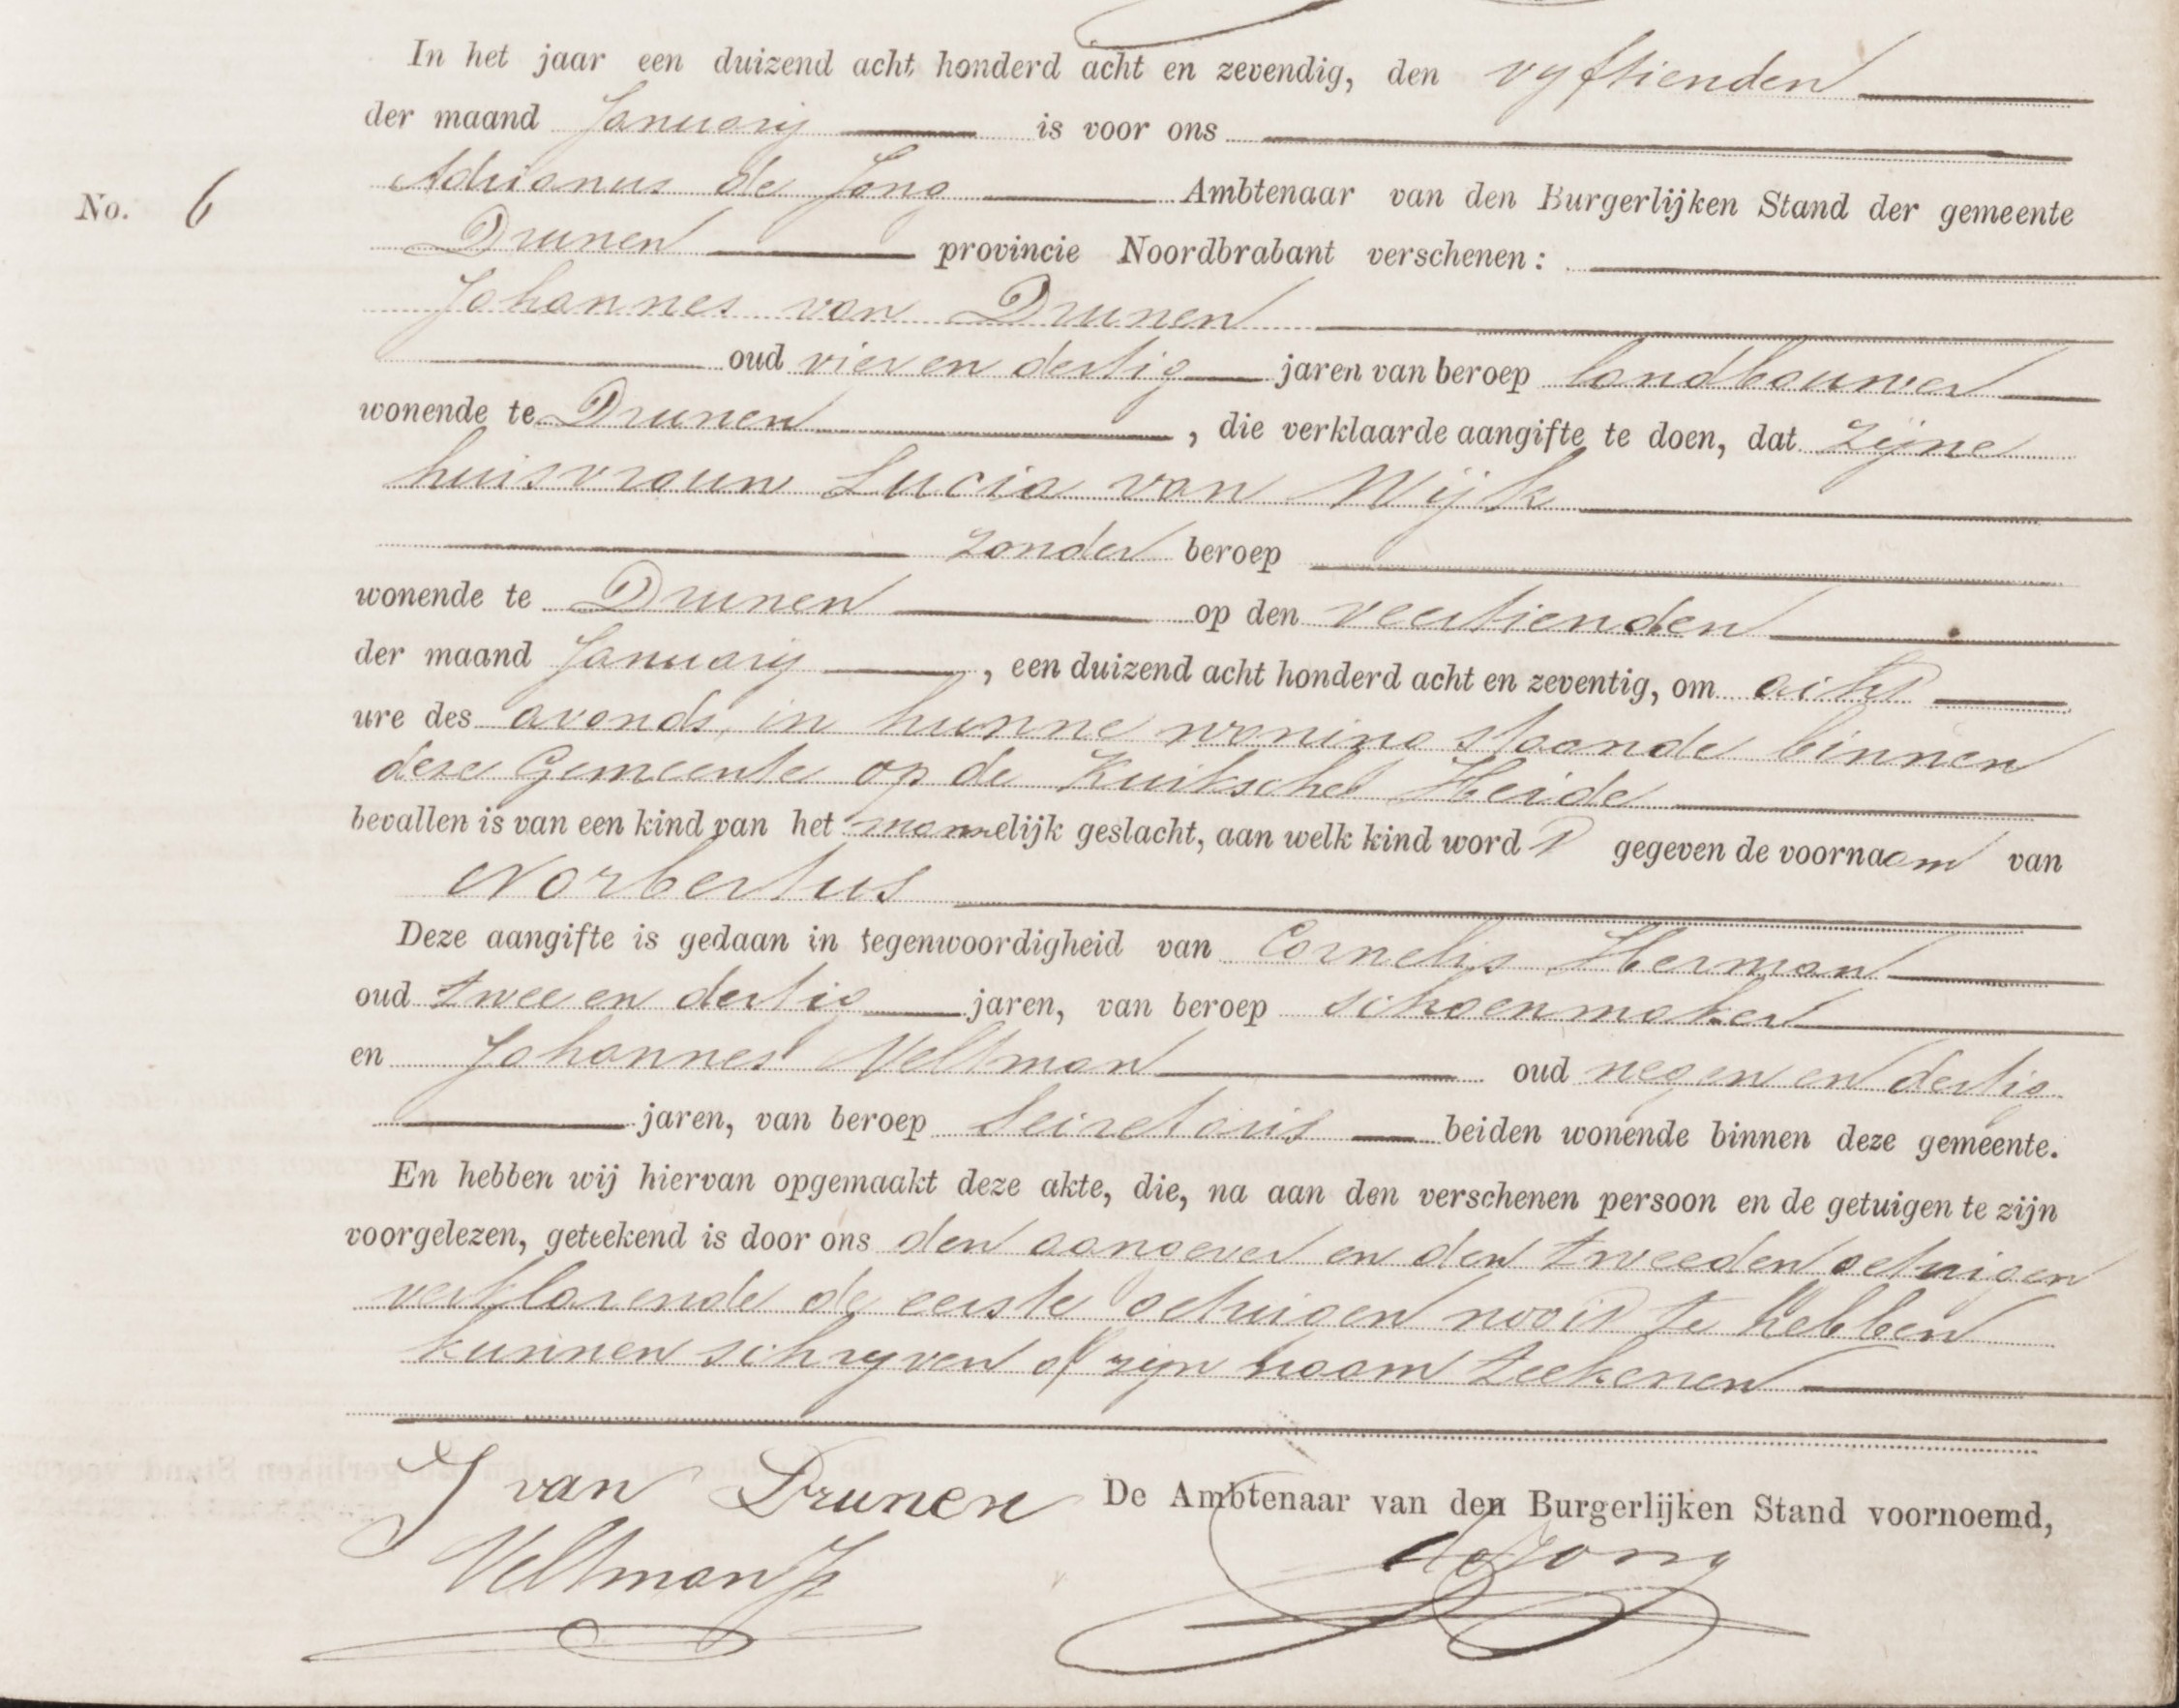 In het jaar een duizend acht honderd acht en zevendig, den vyftienden
der maand January is voor ons
No. 6
Adrianus de Jong Ambtenaar van den Burgerlijken Stand der gemeente
Drunen provincie Noordbrabant verschenen:
Johannes van Drunen
oud vier en dertig jaren van beroep landbouwer
wonende te Drunen, die verklaarde aangifte te doen, dat zijne
huisvrouw Lucia van Wijk
zonder beroep
wonende te Drunen op den veertienden
der maand January, een duizend acht honderd acht en zeventig, om acht
ure des avonds, in hunne woning staande binnen
deze Gemeente op de Kuiksche Heide
bevallen is van een kind van het mannelijk geslacht, aan welk kind wordt gegeven de voornaam van
Norbertus
Deze aangifte is gedaan in tegenwoordigheid van Cornelis Herman
oud twee en dertig jaren, van beroep schoenmaker
en Johannes Veltman oud negen en dertig
jaren, van beroep Secretaris beiden wonende binnen deze gemeente.
En hebben wij hiervan opgemaakt deze akte, die, na aan den verschenen persoon en de getuigen te zijn
voorgelezen, geteekend is door ons den aangever en den tweeden getuigen
verklarende de eerste getuigen nooit te hebben
kunnen schryven of zijn naam teekenen
J van Drunen De Ambtenaar van den Burgerlijken Stand voornoemd,
Veltman Jz AdeJong